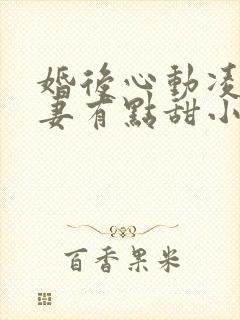 婚後心動凌
妻有點甜小
百香果米